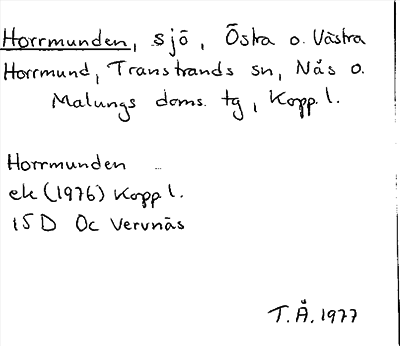 Horrmunden, sjö, Östra o. Västra
Horrmund, Transtrands sn, Nås o.
Malungs doms. tg, Kopp. l.
Horrmunden
ek (1976) Kopp l.
15 D Oc Vervnäs
T.Å. 1977